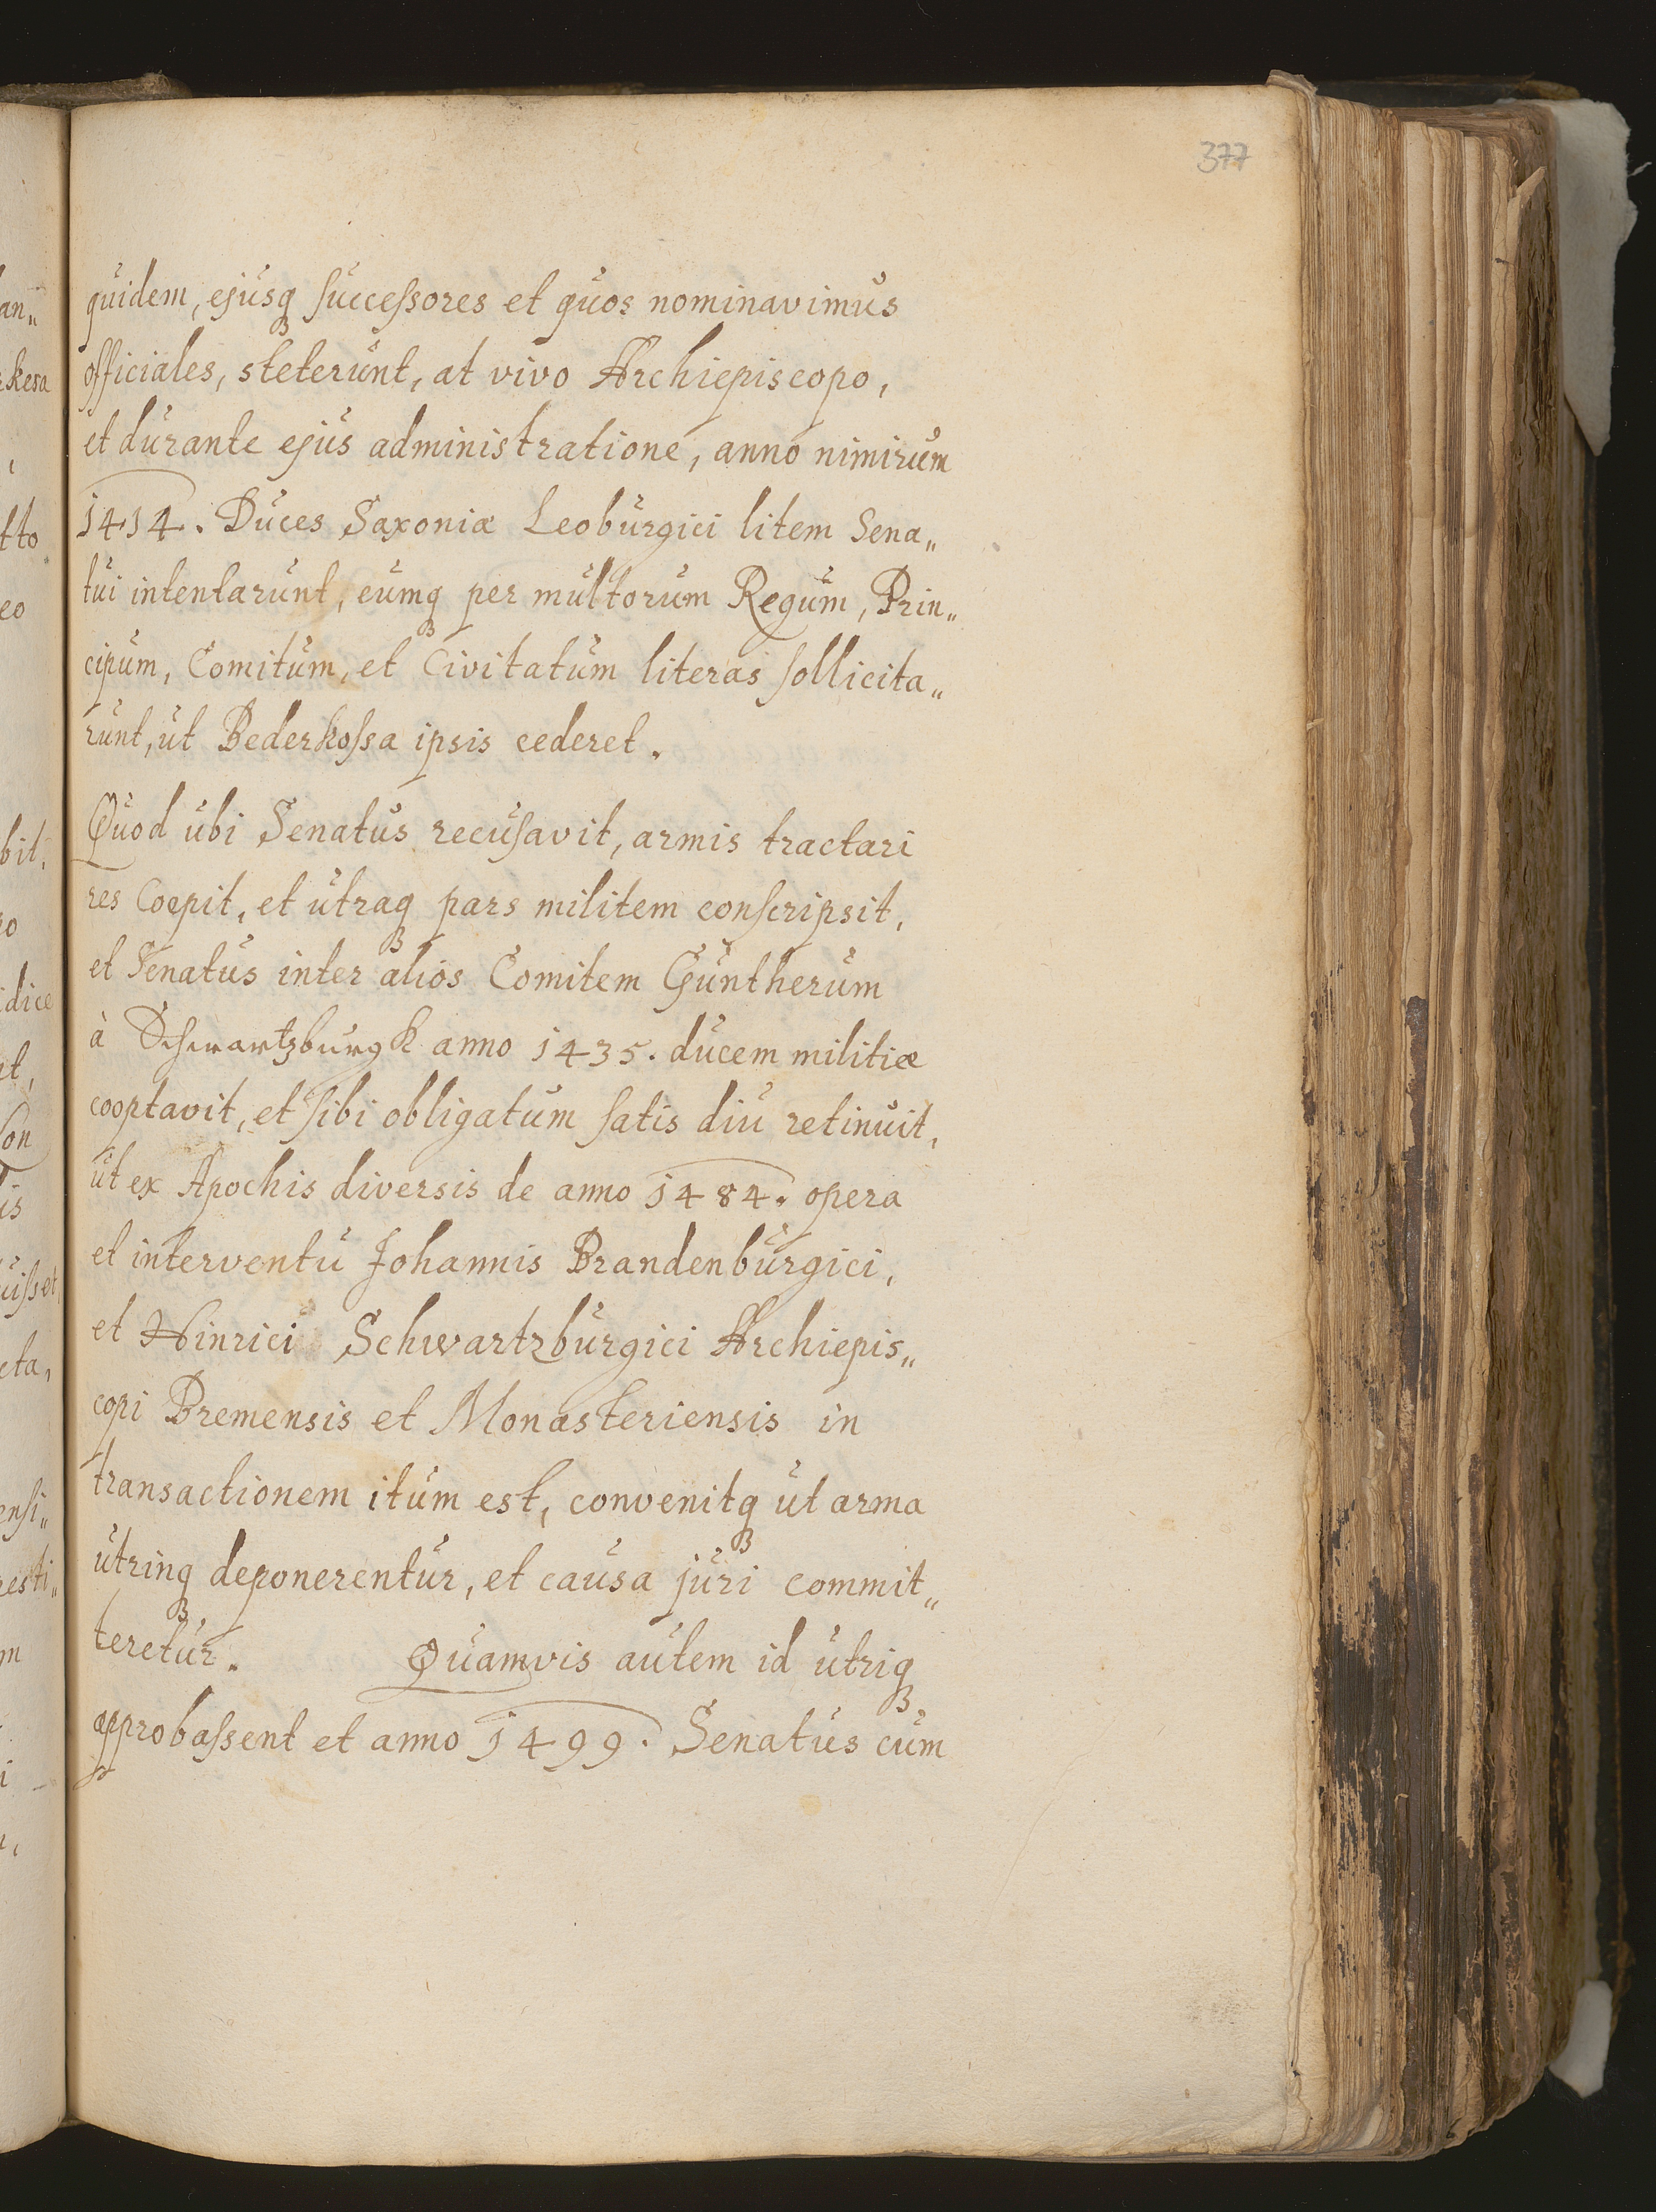 377
quidem, ejusqꝫ successores et quos nominavimus
officiales, steterunt, at vivo Archiepiscopo,
et durante ejus administratione, anno nimirum
1414. Duces Saxoniæ Leoburgici litem Sena„
tui intentarunt, eumqꝫ per multorum Regum, Prin„
cipum, Comitum, et Civitatum literas sollicita„
runt, ut Bederkossa ipsis cederet.
Quod ubi Senatus recusavit, armis tractari
res Coepit, et utraqꝫ pars militem conscripsit,
et Senatus inter alios Comitem Guntherum
à Schwartzburgk anno 1435. ducem militiæ
cooptavit, et sibi obligatum satis diu retinuit,
ut ex Apochis diversis de anno 1484. opera
et interventu Johannis Brandenburgici,
et Hinrici Schwartzburgici Archiepis„
copi Bremensis et Monasteriensis in
transactionem itum est, convenitqꝫ ut arma
utrinqꝫ deponerentur, et causa juri commit„
teretur. Quamvis autem id utriqꝫ
approbassent et anno 1499. Senatus cum